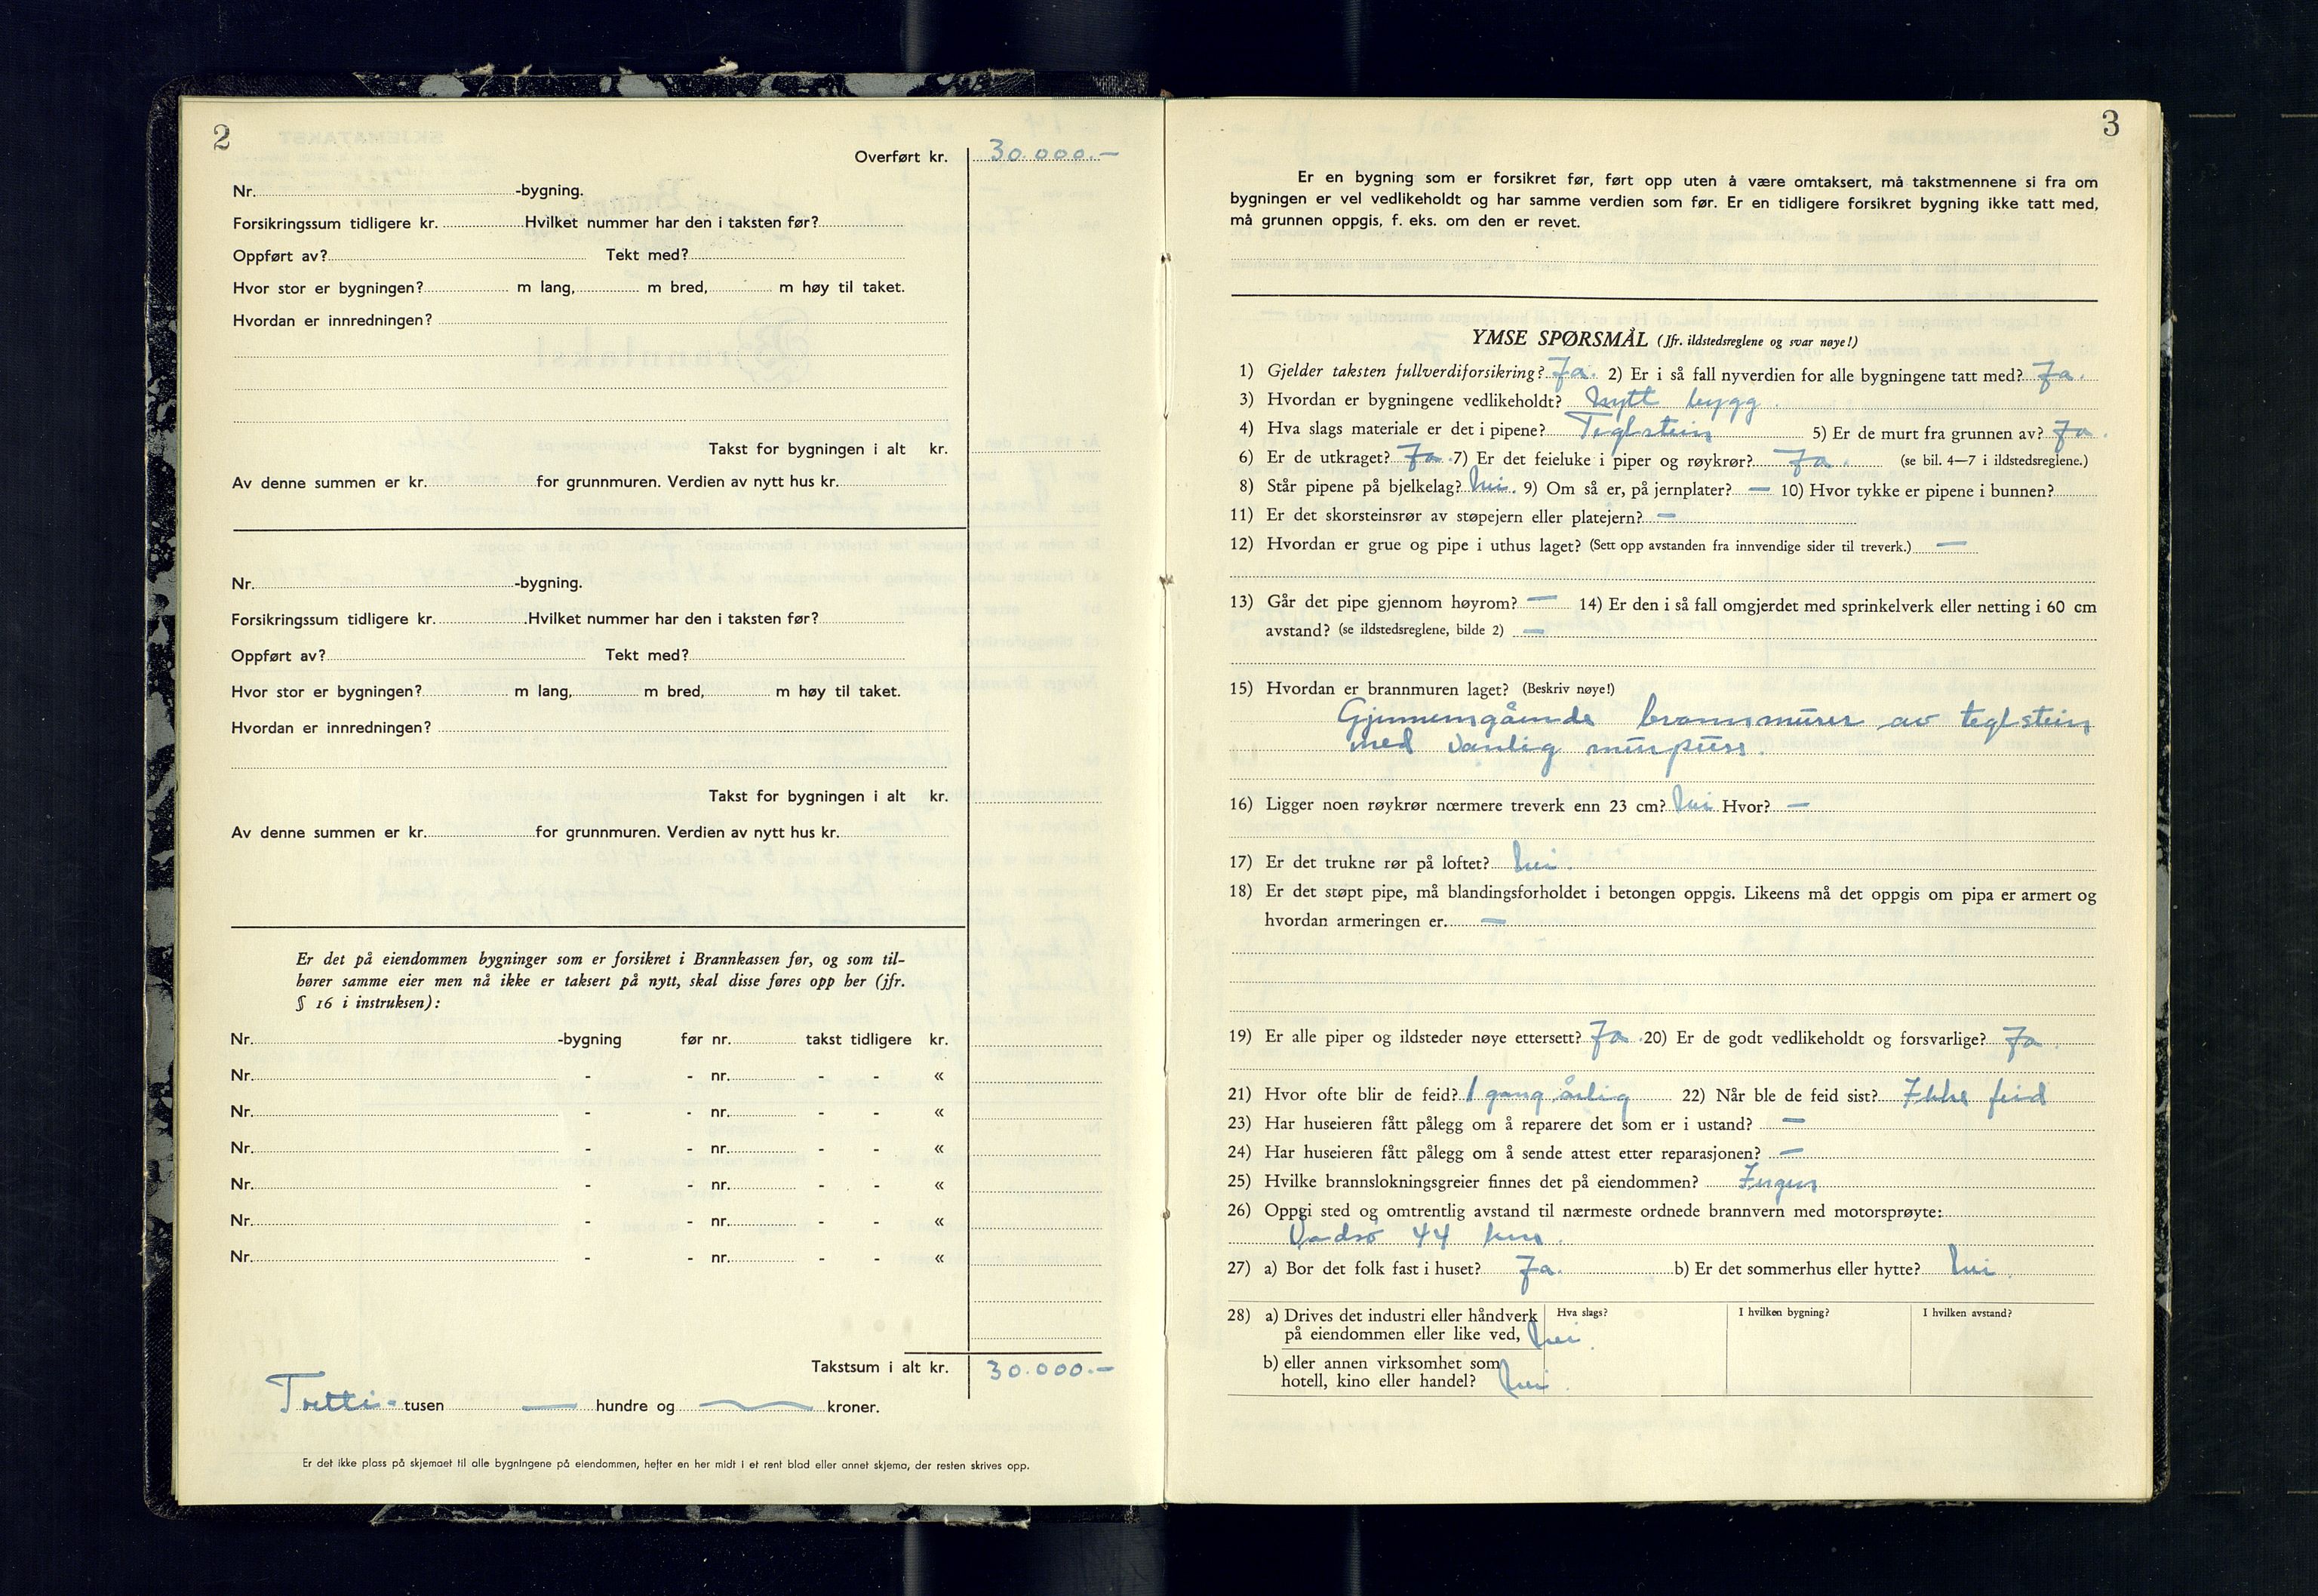 2
Overført kr. 30.000.—
Nr. -bygning.
Forsikringssum tidligere kr. Hvilket nummer har den i taksten før?
Oppført av? Tekt med?
Hvor stor er bygningen? m lang, m bred, m høy til taket.
Hvordan er innredningen?
Takst for bygningen i alt kr.
Av denne summen er kr. for grunnmuren. Verdien av nytt hus kr.
Nr. -bygning.
Forsikringssum tidligere kr. Hvilket nummer har den i taksten før?
Oppført av? Tekt med?
Hvor stor er bygningen? m lang, m bred, m høy til taket.
Hvordan er innredningen?
Takst for bygningen i alt kr.
Av denne summen er kr. for grunnmuren. Verdien av nytt hus kr.
Er det på eiendommen bygninger som er forsikret i Brannkassen før, og som til-
hører samme eier men nå ikke er taksert på nytt, skal disse føres opp her (jfr.
§ 16 i instruksen):
Nr. -bygning før nr. takst tidligere kr.
Nr. - - nr. - - «
Nr. - - nr. - - «
Nr. - - nr. - - «
Nr. - - nr. - - «
Nr. - - nr. - - «
Nr. - - nr. - - «
Takstsum i alt kr. 30.000.—
Tretti- tusen — hundre og — kroner.
Er det ikke plass på skjemaet til alle bygningene på eiendommen, hefter en her midt i et rent blad eller annet skjema, der resten skrives opp.
3
Er en bygning som er forsikret før, ført opp uten å være omtaksert, må takstmennene si fra om
bygningen er vel vedlikeholdt og har samme verdien som før. Er en tidligere forsikret bygning ikke tatt med,
må grunnen oppgis, f. eks. om den er revet.
YMSE SPØRSMÅL (Jfr. ildstedsreglene og svar nøye!)
1) Gjelder taksten fullverdiforsikring? Ja. 2) Er i så fall nyverdien for alle bygningene tatt med? Ja.
3) Hvordan er bygningene vedlikeholdt? Nytt bygg.
4) Hva slags materiale er det i pipene? Teglstein 5) Er de murt fra grunnen av? Ja.
6) Er de utkraget? Ja. 7) Er det feieluke i piper og røykrør? Ja. (se bil. 4—7 i ildstedsreglene.)
8) Står pipene på bjelkelag? Nei. 9) Om så er, på jernplater? — 10) Hvor tykke er pipene i bunnen?
11) Er det skorsteinsrør av støpejern eller platejern? —
12) Hvordan er grue og pipe i uthus laget? (Sett opp avstanden fra innvendige sider til treverk.) —
13) Går det pipe gjennom høyrom? — 14) Er den i så fall omgjerdet med sprinkelverk eller netting i 60 cm
avstand? (se ildstedsreglene, bilde 2) —
15) Hvordan er brannmuren laget? (Beskriv nøye!)
Gjennemgående brannmurer av teglstein
med vanlig murpuss.
16) Ligger noen røykrør nærmere treverk enn 23 cm? Nei Hvor? —
17) Er det trukne rør på loftet? Nei.
18) Er det støpt pipe, må blandingsforholdet i betongen oppgis. Likeens må det oppgis om pipa er armert og
hvordan armeringen er. —
19) Er alle piper og ildsteder nøye ettersett? Ja. 20) Er de godt vedlikeholdt og forsvarlige? Ja.
21) Hvor ofte blir de feid? 1 gang årlig 22) Når ble de feid sist? Ikke feid
23) Har huseieren fått pålegg om å reparere det som er i ustand? —
24) Har huseieren fått pålegg om å sende attest etter reparasjonen? —
25) Hvilke brannslokningsgreier finnes det på eiendommen? Ingen
26) Oppgi sted og omtrentlig avstand til nærmeste ordnede brannvern med motorsprøyte:
Vadsø 44 km.
27) a) Bor det folk fast i huset? Ja. b) Er det sommerhus eller hytte? Nei.
28) a) Drives det industri eller håndverk Hva slags? I hvilken bygning? I hvilken avstand?
på eiendommen eller like ved, Nei.
b) eller annen virksomhet som
hotell, kino eller handel? Nei.